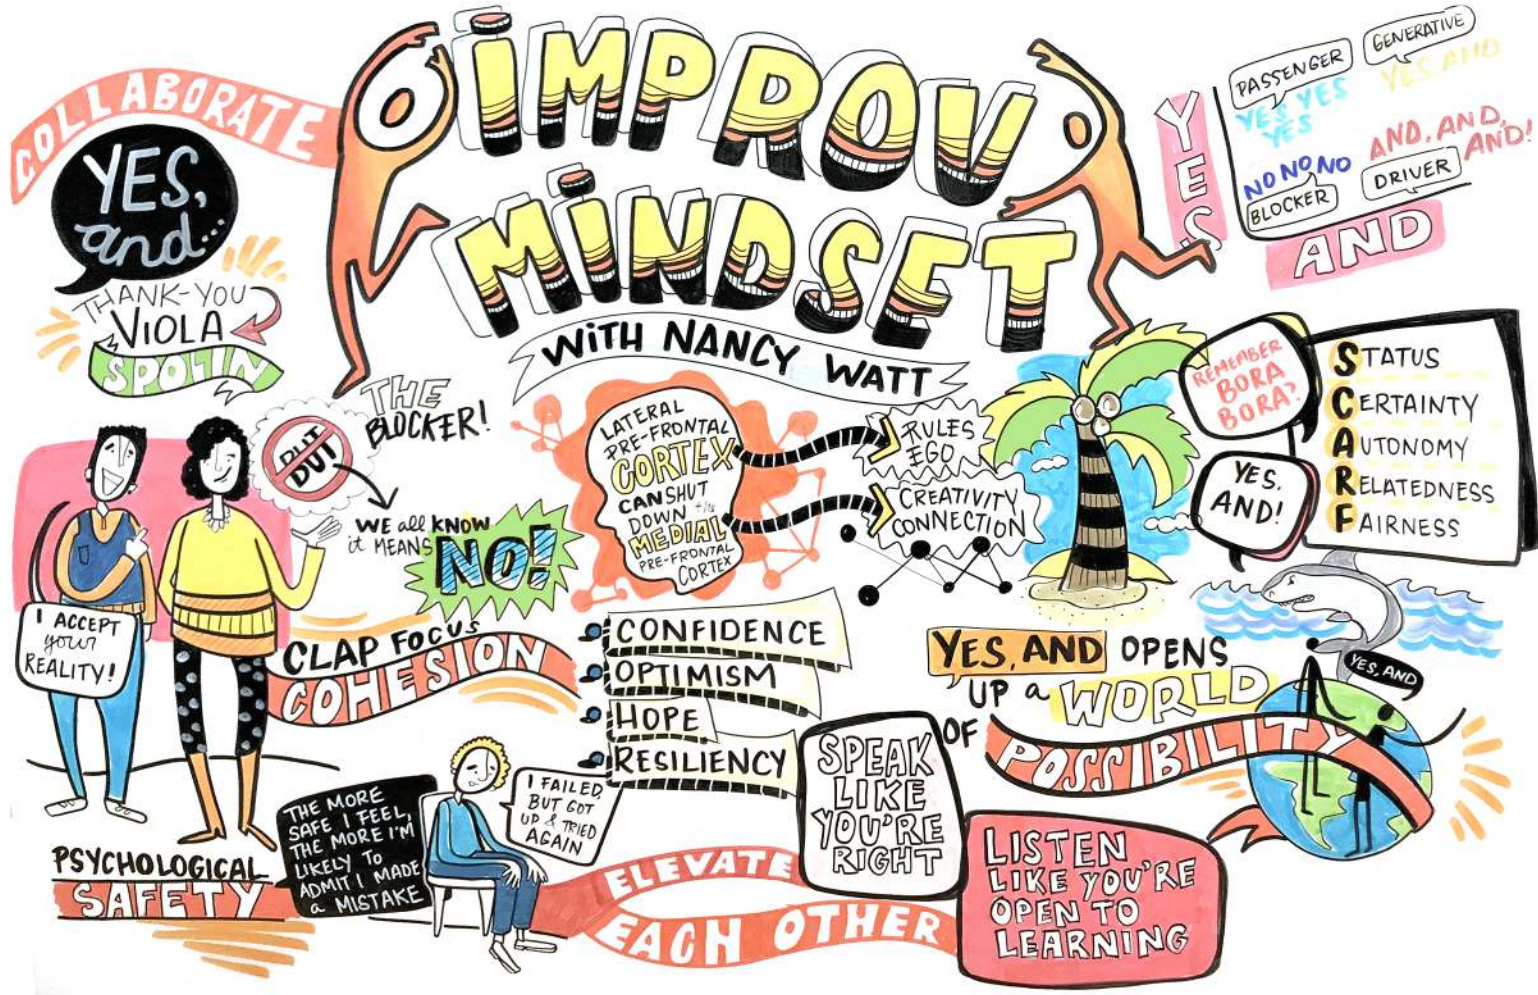 COLLABORATE
YES,
and...
THANK-YOU
VIOLA
SPOLIN
IMPROV
MINDSET
WITH NANCY WATT
YES
AND
PASSENGER
YES YES
YES
YES
GENERATIVE
YES, AND
NO NO NO
BLOCKER
AND, AND,
AND!
DRIVER
THE
BLOCKER!
BUT
BUT
WE all KNOW
it MEANS
NO!
I ACCEPT
your
REALITY!
CLAP FOCUS
COHESION
LATERAL
PRE-FRONTAL
CORTEX
CAN SHUT
DOWN the
MEDIAL
PRE-FRONTAL
CORTEX
RULES
EGO
CREATIVITY
CONNECTION
REMEMBER
BORA
BORA?
YES,
AND!
STATUS
CERTAINTY
AUTONOMY
RELATEDNESS
FAIRNESS
CONFIDENCE
OPTIMISM
HOPE
RESILIENCY
YES, AND OPENS
UP a WORLD
OF POSSIBILITY
YES, AND
PSYCHOLOGICAL
SAFETY
THE MORE
SAFE I FEEL,
THE MORE I'M
LIKELY TO
ADMIT I MADE
a MISTAKE
I FAILED,
BUT GOT
UP & TRIED
AGAIN
ELEVATE
EACH OTHER
SPEAK
LIKE
YOU'RE
RIGHT
LISTEN
LIKE YOU'RE
OPEN TO
LEARNING